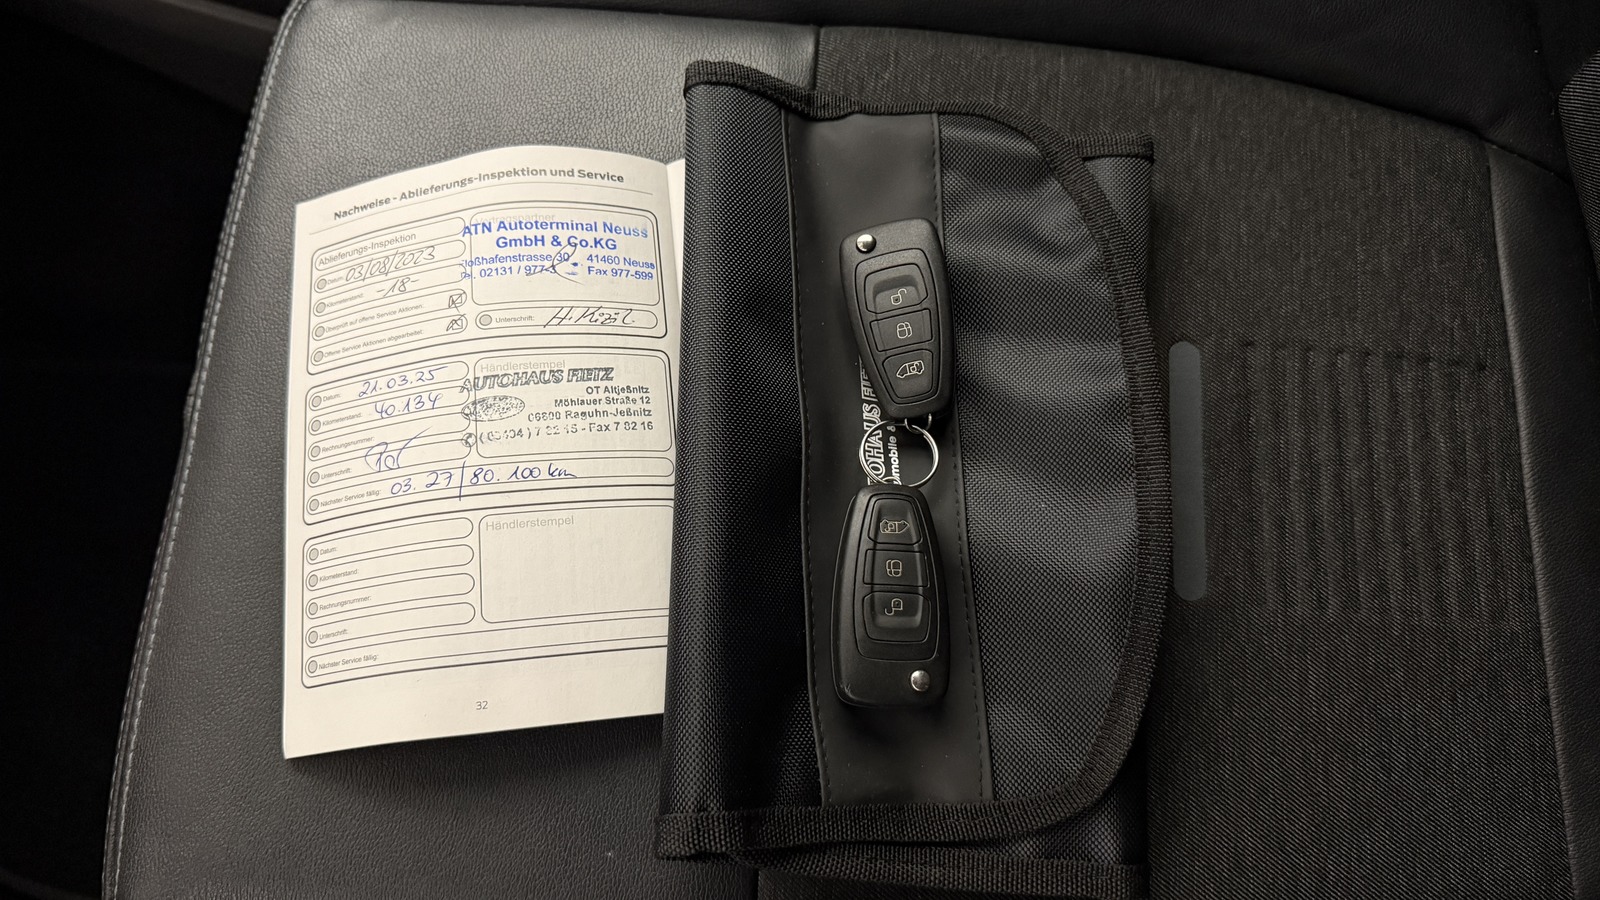 Nachweise - Ablieferungs-Inspektion und Service
Ablieferungs-Inspektion
Datum: 03/08/2023
Kilometerstand: -18-
Überprüft auf offene Service Aktionen:
Offene Service Aktionen abgearbeitet:
Vertragspartner
ATN Autoterminal Neuss
GmbH & Co.KG
Floßhafenstrasse 30 41460 Neuss
Tel. 02131 / 977- Fax 977-599
Unterschrift: H. Kizil
Datum: 21.03.25
Kilometerstand: 40.134
Rechnungsnummer:
Unterschrift:
Nächster Service fällig: 03.27/80.100 km
Händlerstempel
AUTOHAUS FIETZ
OT Altjeßnitz
Möhlauer Straße 12
06800 Raguhn-Jeßnitz
(03494) 7 82 15 - Fax 7 82 16
Datum:
Kilometerstand:
Rechnungsnummer:
Unterschrift:
Nächster Service fällig:
Händlerstempel
32